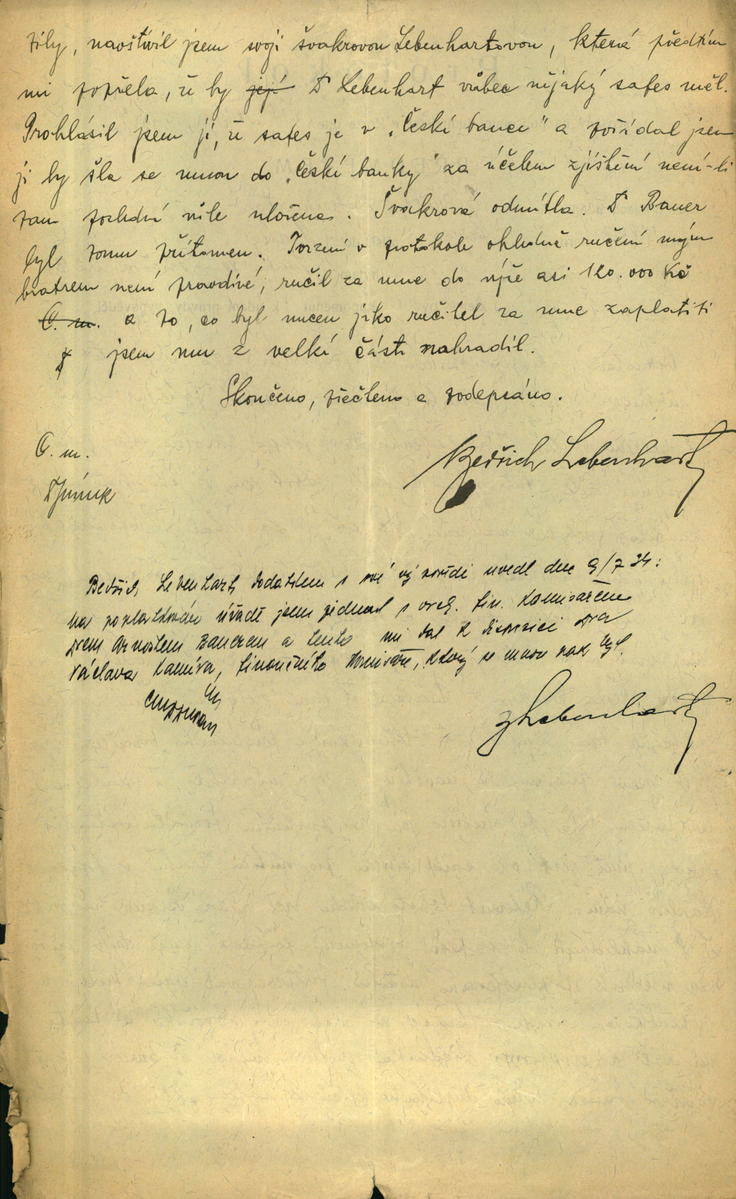 žily, navštívil jsem svoji švakrovou Lebenhartovou, která předtím
mi popřela, že by její Dr Lebenhart vůbec nějaký safes měl.
Prohlásil jsem jí, že safes je v „České bance" a požádal jsem
ji by šla se mnou do „České banky" za účelem zjištění není-li
tam poslední vůle uložena. Švakrová odmítla. Dr Bauer
byl tomu přítomen. Tvrzení v protokole ohledně ručení mým
bratrem není pravdivé, ručil za mne do výše asi 120.000 Kč
C. m. a to, co byl nucen jako ručitel za mne zaplatiti
jsem mu z velké části nahradil.
Skončeno, přečteno a podepsáno.
C. m.
Bedřich Lebenhart
Bedřich Lebenhart dodatkem k své výpovědi uvedl dne 9/7 34:
na poplatkovém úřadě jsem jednal s vrch. fin. komisařem
drem Arnoštem Bauerem a tento mi dal k disposici dra
Václava Kamíra, finančního komisaře, který se mnou pak byl.
Lebenhart